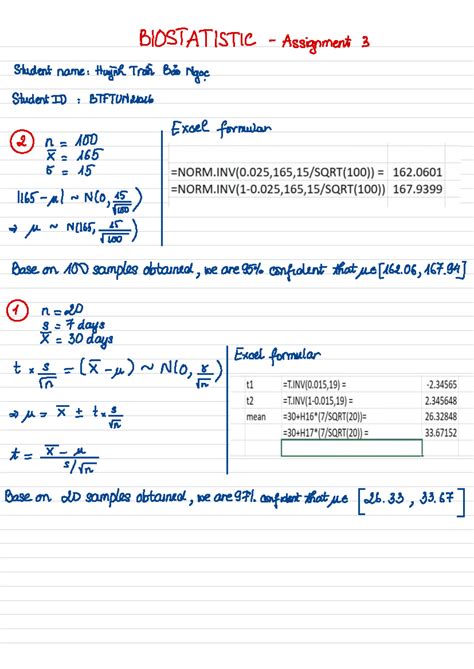 BIOSTATISTIC - Assignment 3
Student name: Huỳnh Trần Bảo Ngọc
Student ID : BTFTUN21026
② n = 100
x̄ = 165
σ = 15
|165 - μ| ~ N(0, 15/√100)
⇒ μ ~ N(165, 15/√100)
Excel formular
=NORM.INV(0.025,165,15/SQRT(100)) = 162.0601
=NORM.INV(1-0.025,165,15/SQRT(100)) 167.9399
Base on 100 samples obtained, we are 95% confident that μ∈ [162.06, 167.94]
① n = 20
s = 7 days
x̄ = 30 days
t × s/√n = (x̄ - μ) ~ N(0, s/√n)
⇒ μ = x̄ ± t × s/√n
t = x̄ - μ / s/√n
Excel formular
t1 =T.INV(0.015,19) = -2.34565
t2 =T.INV(1-0.015,19) = 2.345648
mean =30+H16*(7/SQRT(20))= 26.32848
=30+H17*(7/SQRT(20)) = 33.67152
Base on 20 samples obtained, we are 97% confident that μ∈ [26.33 , 33.67]